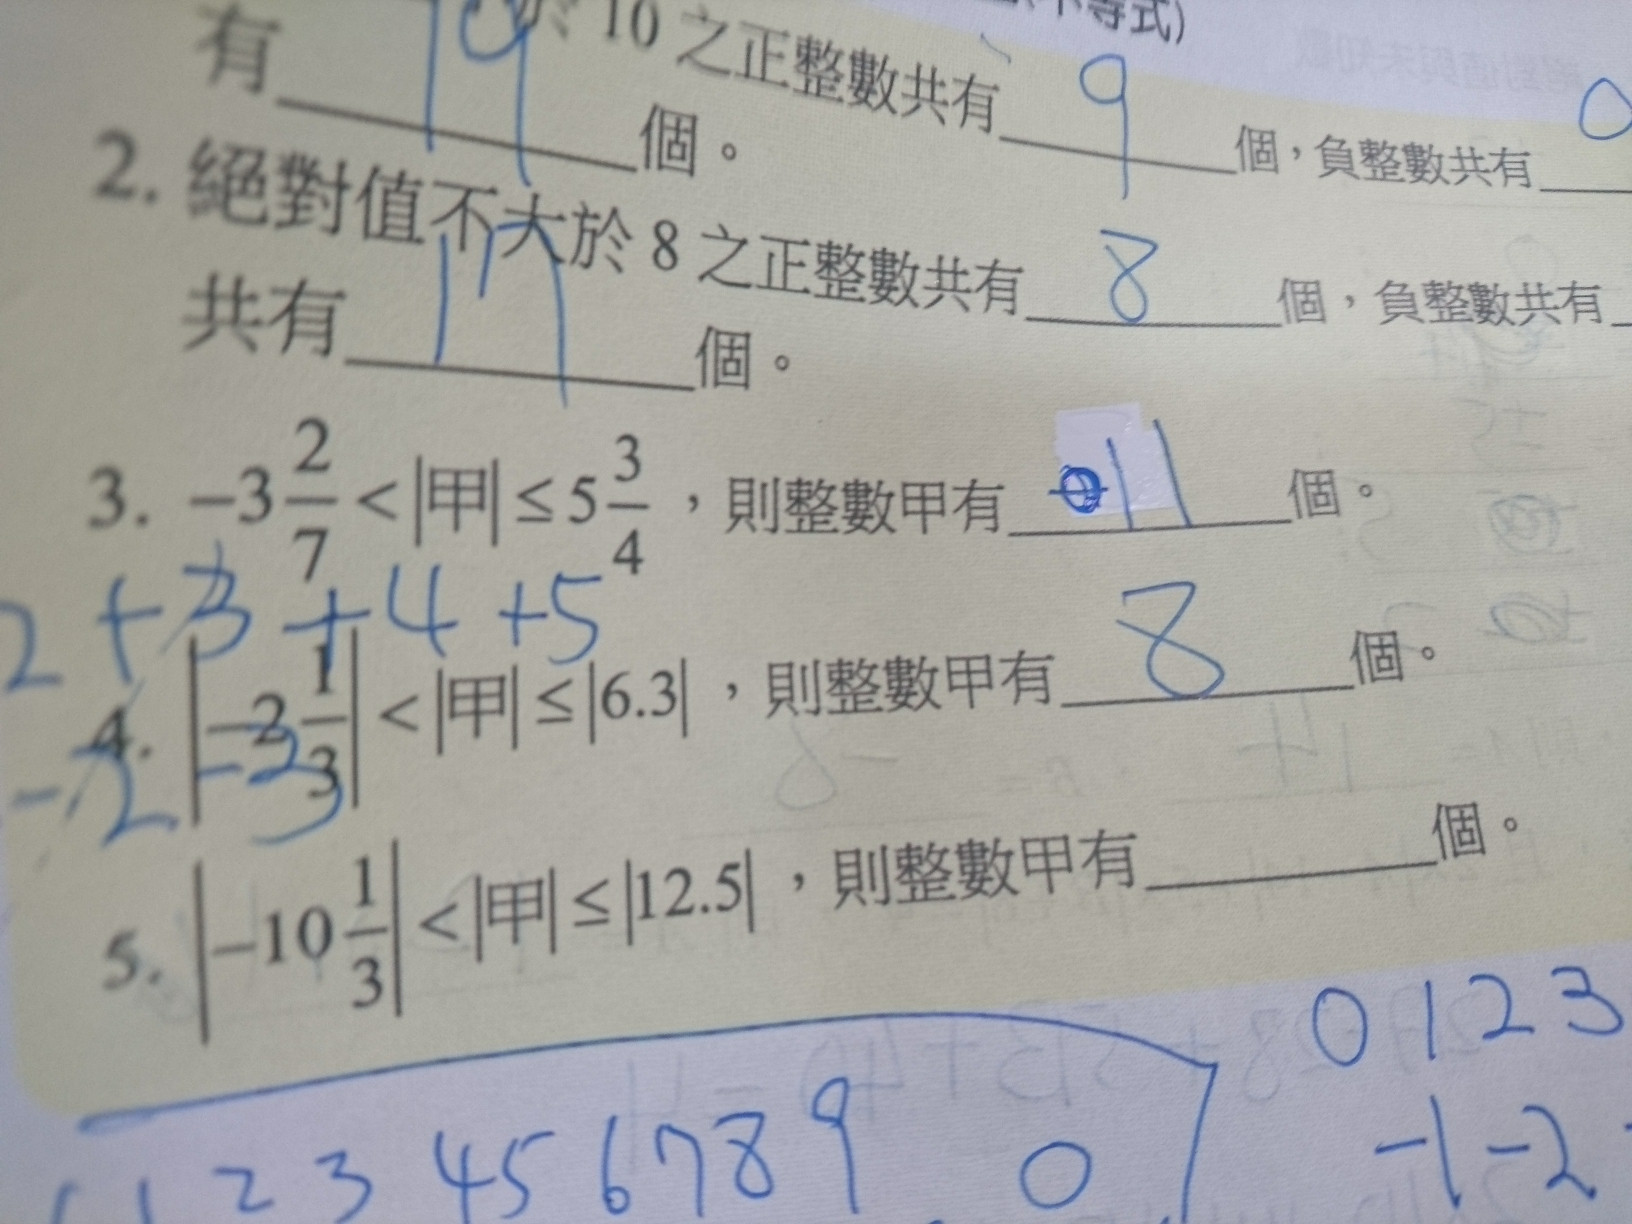 不等式)
有 19 個。
於 10 之正整數共有 9 個，負整數共有
2. 絕對值不大於 8 之正整數共有 8 個，負整數共有
共有 17 個。
3. −3 2/7 < |甲| ≤ 5 3/4，則整數甲有 11 個。
2 + 3 + 4 + 5
4. |−2 1/3| < |甲| ≤ |6.3|，則整數甲有 8 個。
-2 -3
5. |−10 1/3| < |甲| ≤ |12.5|，則整數甲有 個。
0 1 2 3
1 2 3 4 5 6 7 8 9 0
-1 -2